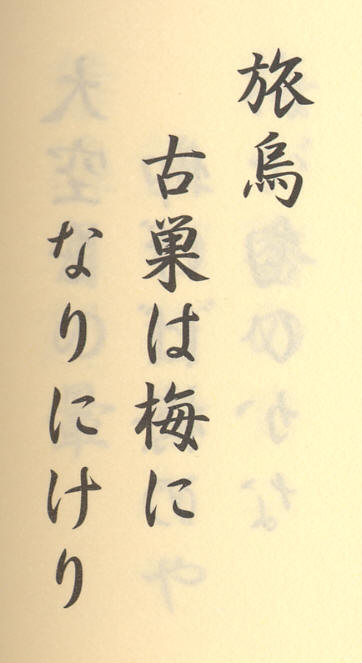 旅烏
古巣は梅に
なりにけり